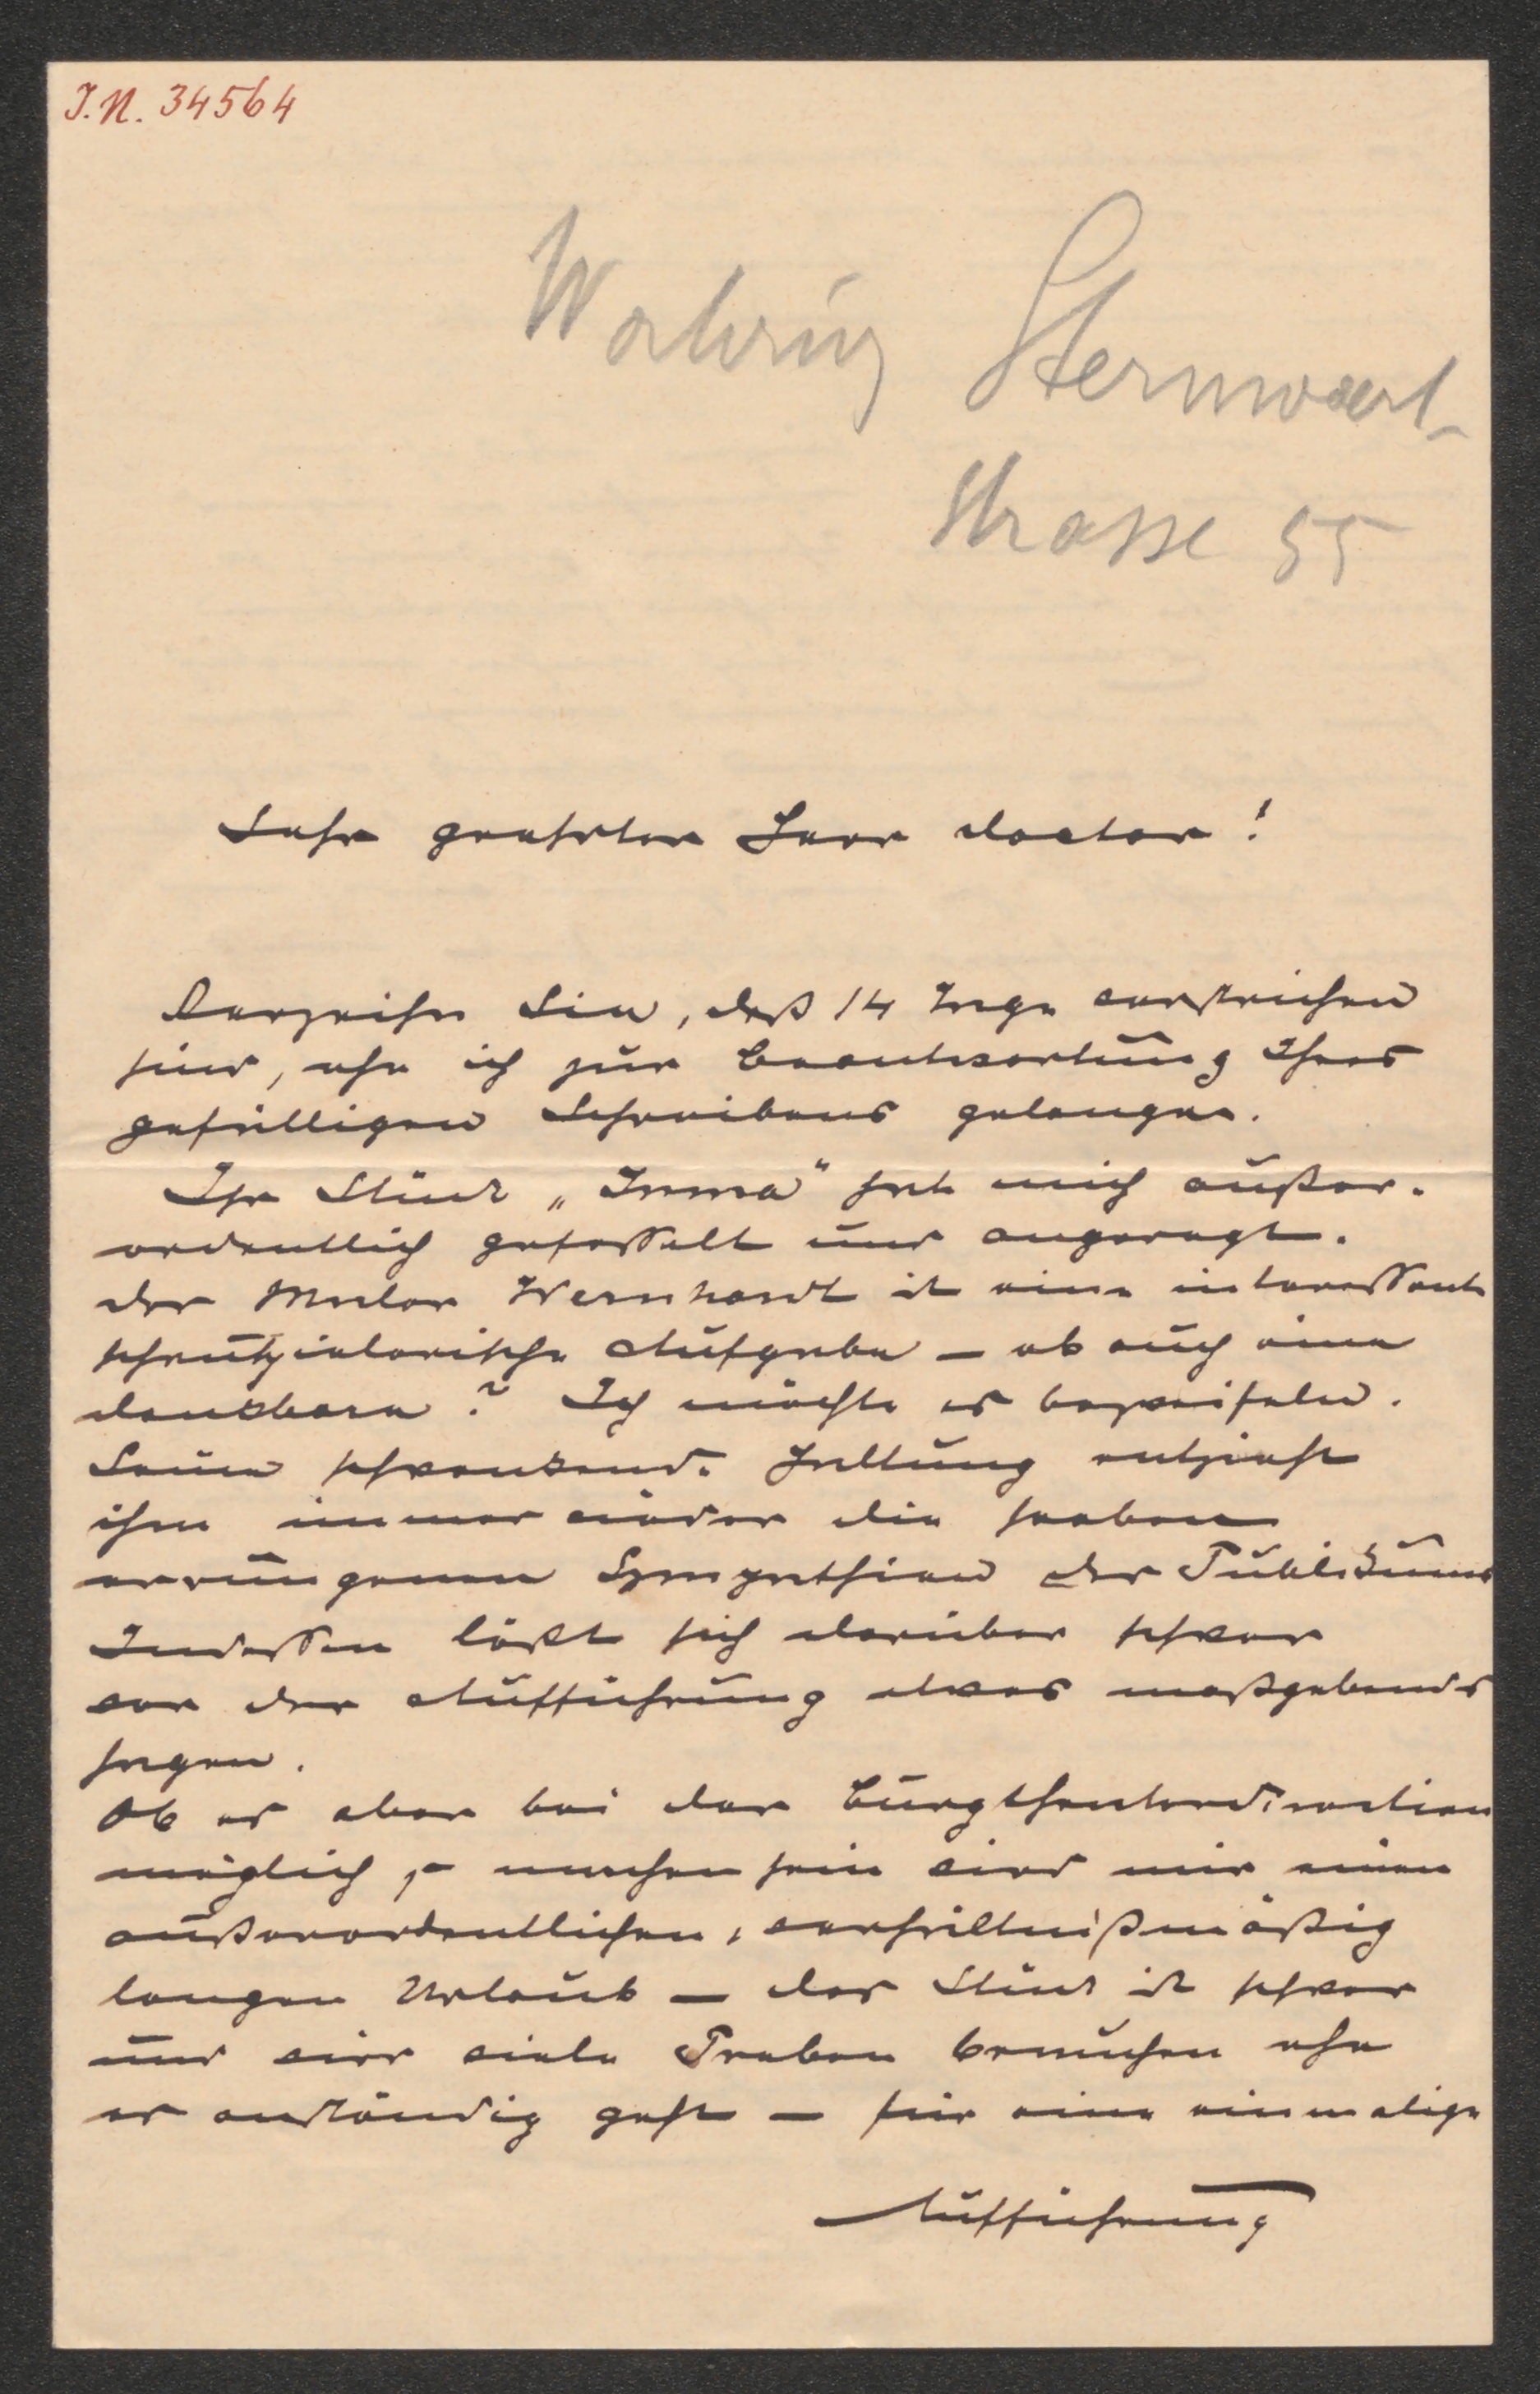 J.N. 34564
Währing Sternwart-
strasse 55
Sehr geehrter Herr Doctor!
Verzeihen Sie, daß 14 Tage verstrichen
sind, ehe ich zur Beantwortung Ihres
gefälligen Schreibens gelange.
Ihr Stück „Irma" hat mich außer-
ordentlich gefesselt und angeregt.
Der Maler Wernhardt ist eine interessante
schauspielerische Aufgabe – ob auch eine
dankbare? Ich möchte es bezweifeln.
Seine schwankende Haltung entzieht
ihm immer wieder die soeben
errungenen Sympathien des Publikums
Indessen läßt sich darüber schwer
vor der Aufführung etwas maßgebendes
sagen.
Ob es aber bei der Burgtheaterdirection
möglich zu machen sein wird mir einen
außerordentlichen, verhältnißmäßig
langen Urlaub – das Stück ist schwer
und wird viele Proben brauchen ehe
es anständig geht – für eine einmalige
Aufführung